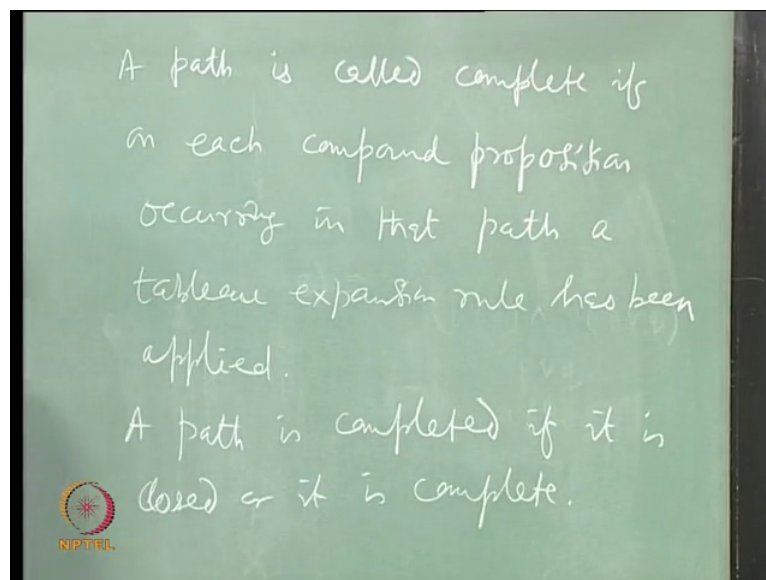 A path is called complete if
on each compound proposition
occurring in that path a
tableau expansion rule has been
applied.
A path is completed if it is
closed or it is complete.
NPTEL